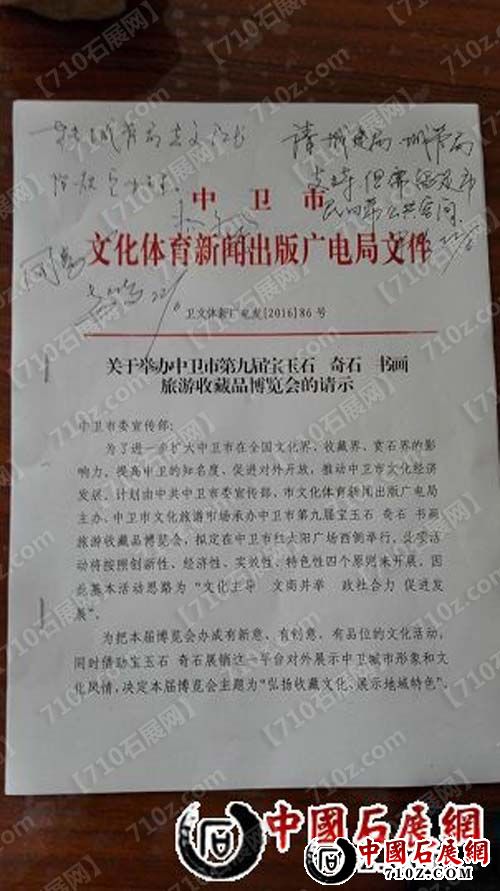 请城建局 城管局
支持
中卫市
文化体育新闻出版广电局文件
卫文体新广电发[2016]86号
关于举办中卫市第九届宝玉石 奇石 书画
旅游收藏品博览会的请示
中卫市委宣传部:
为了进一步扩大中卫市在全国文化界、收藏界、赏石界的影
响力,提高中卫的知名度、促进对外开放,推动中卫市文化经济
发展、计划由中共中卫市委宣传部,市文化体育新闻出版广电局
主办、中卫市文化旅游市场承办中卫市第九届宝玉石 奇石 书画
旅游收藏品博览会,拟定在中卫市红太阳广场西侧举行,此项活
动将按照创新性、经济性、实效性、特色性四个原则来开展,因
此基本活动思路为“文化主导 文商并举 政社合力 促进发
展”。
为把本届博览会办成有新意、有创意、有品位的文化活动,
同时借助宝玉石 奇石展销这一平台对外展示中卫城市形象和文
化风情,决定本届博览会主题为“弘扬收藏文化、展示地域特色”。
【710石展网】
710z.com
中國石展網
710z.com